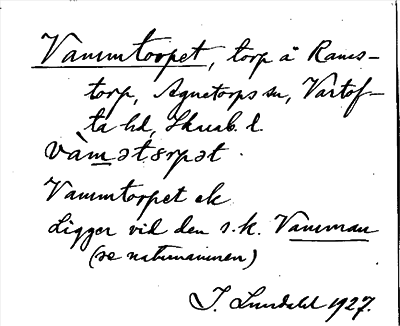 Vammtorpet, torp å Rams-
torp, Agnetorps sn, Vartof-
ta hd, Skarab. l.
vàmətɔrpət.
Vammtorpet ek
Ligger vid den s.k. Vamman
(se naturnamnen)
J. Lundahl 1927.